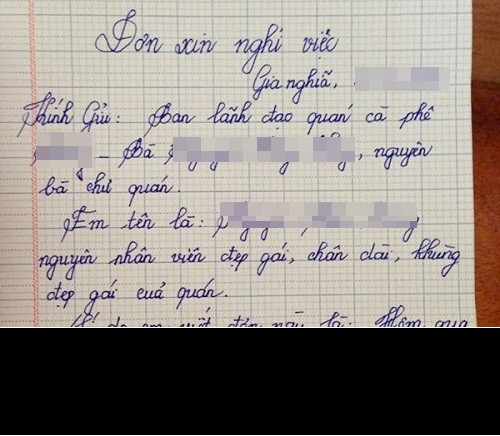 Đơn xin nghỉ việc
Gia nghĩa,
Kính Gửi: Ban lãnh đạo quán cà phê
- Bà , nguyên
bà chủ quán.
Em tên là:
nguyên nhân viên đẹp gái, chân dài, khùng
đẹp gái của quán.
Lí do em viết đơn này là: Hôm qua